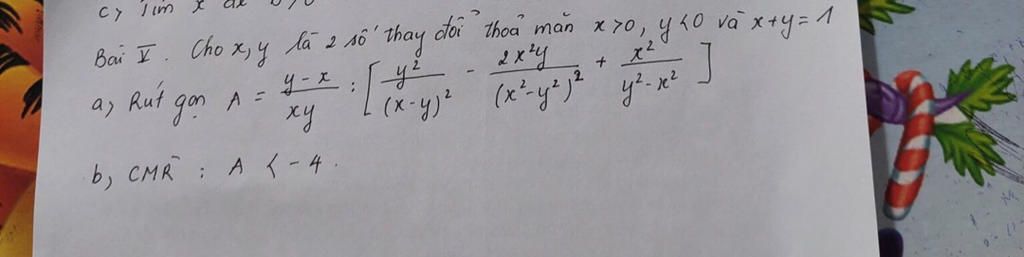 c, Tìm x để b>0
Bài V. Cho x, y là 2 số thay đổi thoả mãn x >0, y <0 và x+y = 1
a, Rút gọn A = \frac{y-x}{xy} : [ \frac{y^2}{(x-y)^2} - \frac{2x^2y}{(x^2-y^2)^2} + \frac{x^2}{y^2-x^2} ]
b, CMR : A < -4.